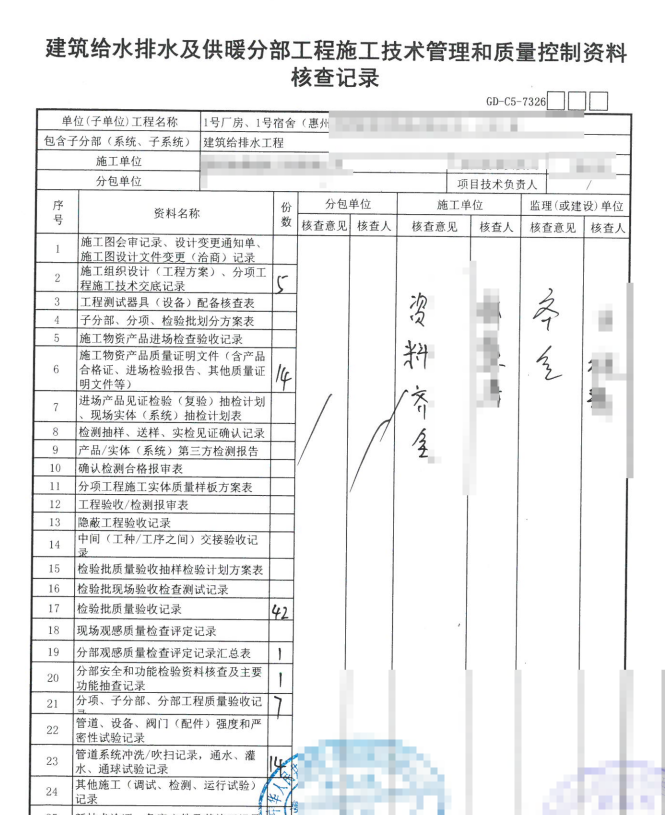 建筑给水排水及供暖分部工程施工技术管理和质量控制资料
核查记录
GD-C5-7326
单位(子单位)工程名称 1号厂房、1号宿舍（惠州
包含子分部（系统、子系统） 建筑给排水工程
施工单位
分包单位 项目技术负责人 /
序号 资料名称 份数 分包单位 施工单位 监理(或建设)单位
核查意见 核查人 核查意见 核查人 核查意见 核查人
1 施工图会审记录、设计变更通知单、
施工图设计文件变更（洽商）记录
2 施工组织设计（工程方案）、分项工
程施工技术交底记录 5
3 工程测试器具（设备）配备核查表
4 子分部、分项、检验批划分方案表
5 施工物资产品进场检查验收记录
6 施工物资产品质量证明文件（含产品
合格证、进场检验报告、其他质量证
明文件等） 14
7 进场产品见证检验（复验）抽检计划
、现场实体（系统）抽检计划表
8 检测抽样、送样、实检见证确认记录
9 产品/实体（系统）第三方检测报告
10 确认检测合格报审表
11 分项工程施工实体质量样板方案表
12 工程验收/检测报审表
13 隐蔽工程验收记录
14 中间（工种/工序之间）交接验收记
录
15 检验批质量验收抽样检验计划方案表
16 检验批现场验收检查测试记录
17 检验批质量验收记录 42
18 现场观感质量检查评定记录
19 分部观感质量检查评定记录汇总表 1
20 分部安全和功能检验资料核查及主要
功能抽查记录 1
21 分项、子分部、分部工程质量验收记
录 7
22 管道、设备、阀门（配件）强度和严
密性试验记录
23 管道系统冲洗/吹扫记录，通水、灌
水、通球试验记录 14
24 其他施工（调试、检测、运行试验）
记录
/ / 资料齐全 齐全